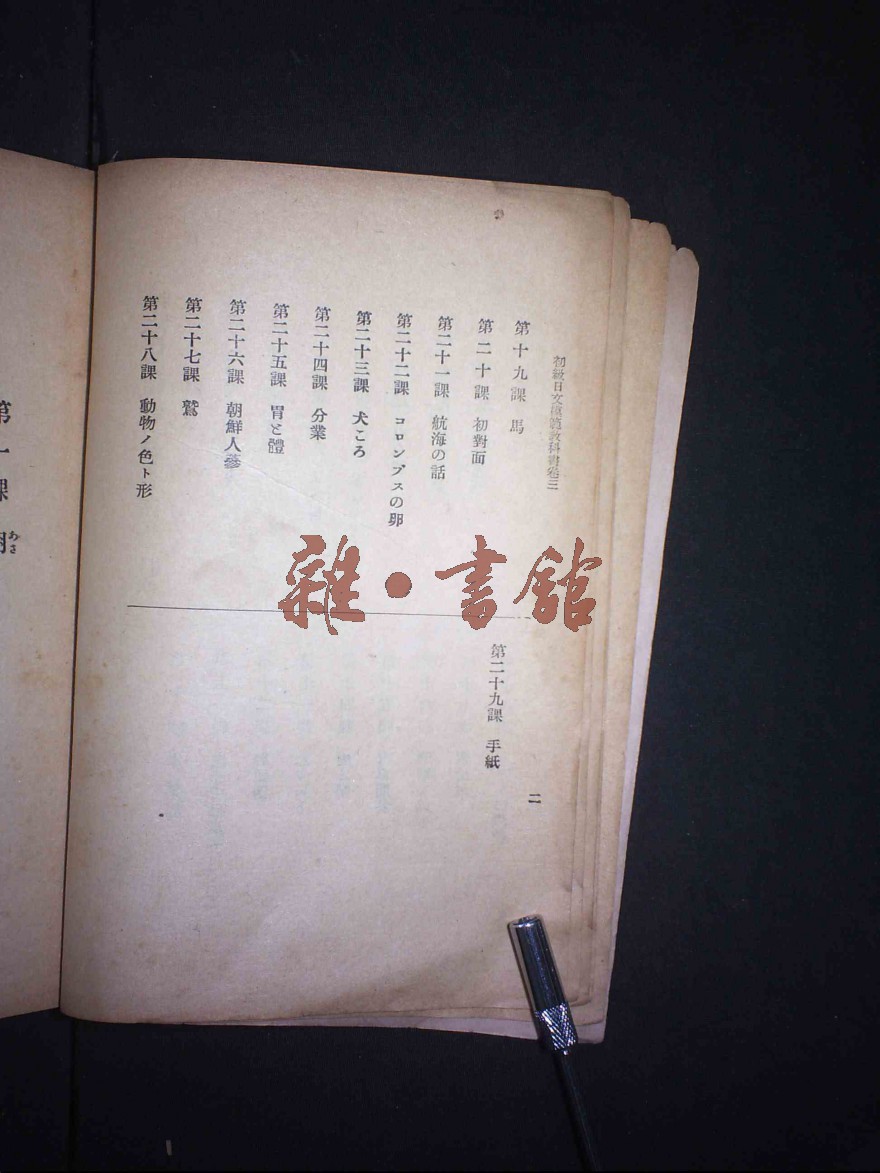 初級日文模範教科書卷三
第十九課 馬
第二十課 初對面
第二十一課 航海の話
第二十二課 コロンブスの卵
第二十三課 犬ころ
第二十四課 分業
第二十五課 胃と體
第二十六課 朝鮮人蔘
第二十七課 鷲
第二十八課 動物ノ色ト形
第二十九課 手紙
二
雜・書館
第一課
あさ